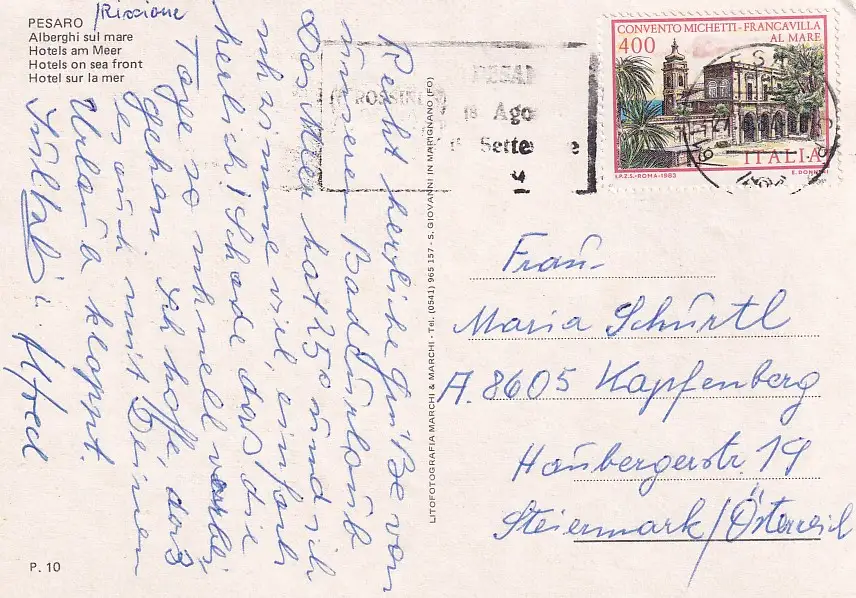 PESARO /Riccione
Alberghi sul mare
Hotels am Meer
Hotels on sea front
Hotel sur la mer
Recht herrliche Grüße von
unserem Badeurlaub
Das Meer hat 25° und ich
schwimme viel, einfach
herrlich! Schade das die
Tage so schnell vorbei
gehen. Ich hoffe, daß
es auch mit Deinem
Urlaub klappt.
u. Alfred
P. 10
LITOFOTOGRAFIA MARCHI & MARCHI - Tel. (0541) 965 157 - S. GIOVANNI IN MARIGNANO (FO)
PESAR
ROSSINI
18 Ago
Sette e
CONVENTO MICHETTI - FRANCAVILLA
AL MARE
400
ITALIA
I.P.Z.S. - ROMA - 1983 E. DONNINI
Frau
Maria Schürtl
A. 8605 Kapfenberg
Haubergerstr. 19
Steiermark/Österreich